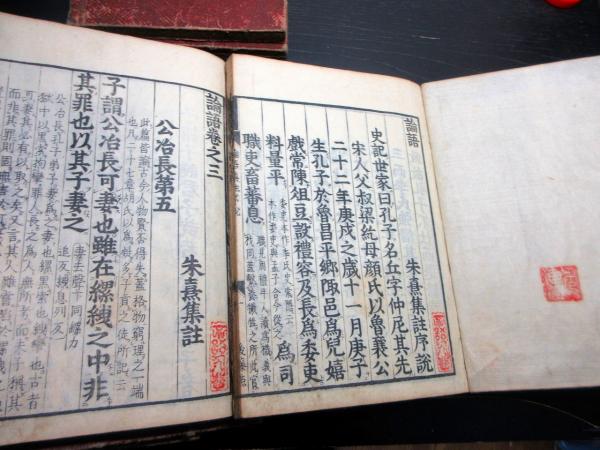 論語
朱熹集註序說
史記世家曰孔子名丘字仲尼其先
宋人父叔梁紇母顏氏以魯襄公
二十二年庚戌之歲十一月庚子
生孔子於魯昌平鄉陬邑爲兒嬉
戲常陳俎豆設禮容及長爲委吏
料量平 委吏本作季氏史索隱云一本作委吏與孟子合今從之 爲司
職吏畜蕃息 職見周禮牛人讀爲樴義與杙同蓋繫養犧牲之所此官
論語卷之三
朱熹集註
公冶長第五
此篇皆論古今人物賢否得失蓋格物窮理之一端
也凡二十七章胡氏以爲疑多子貢之徒所記云
子謂公冶長可妻也雖在縲絏之中非
其罪也以其子妻之 妻去聲下同縲力追反絏息列反
公冶長孔子弟子妻爲之妻也縲黑索也絏攣也古者
獄中以黑索拘攣罪人長之爲人無所考而夫子稱其
可妻其必有以取之矣又言其人雖嘗陷於縲絏
而非其罪則固無害於